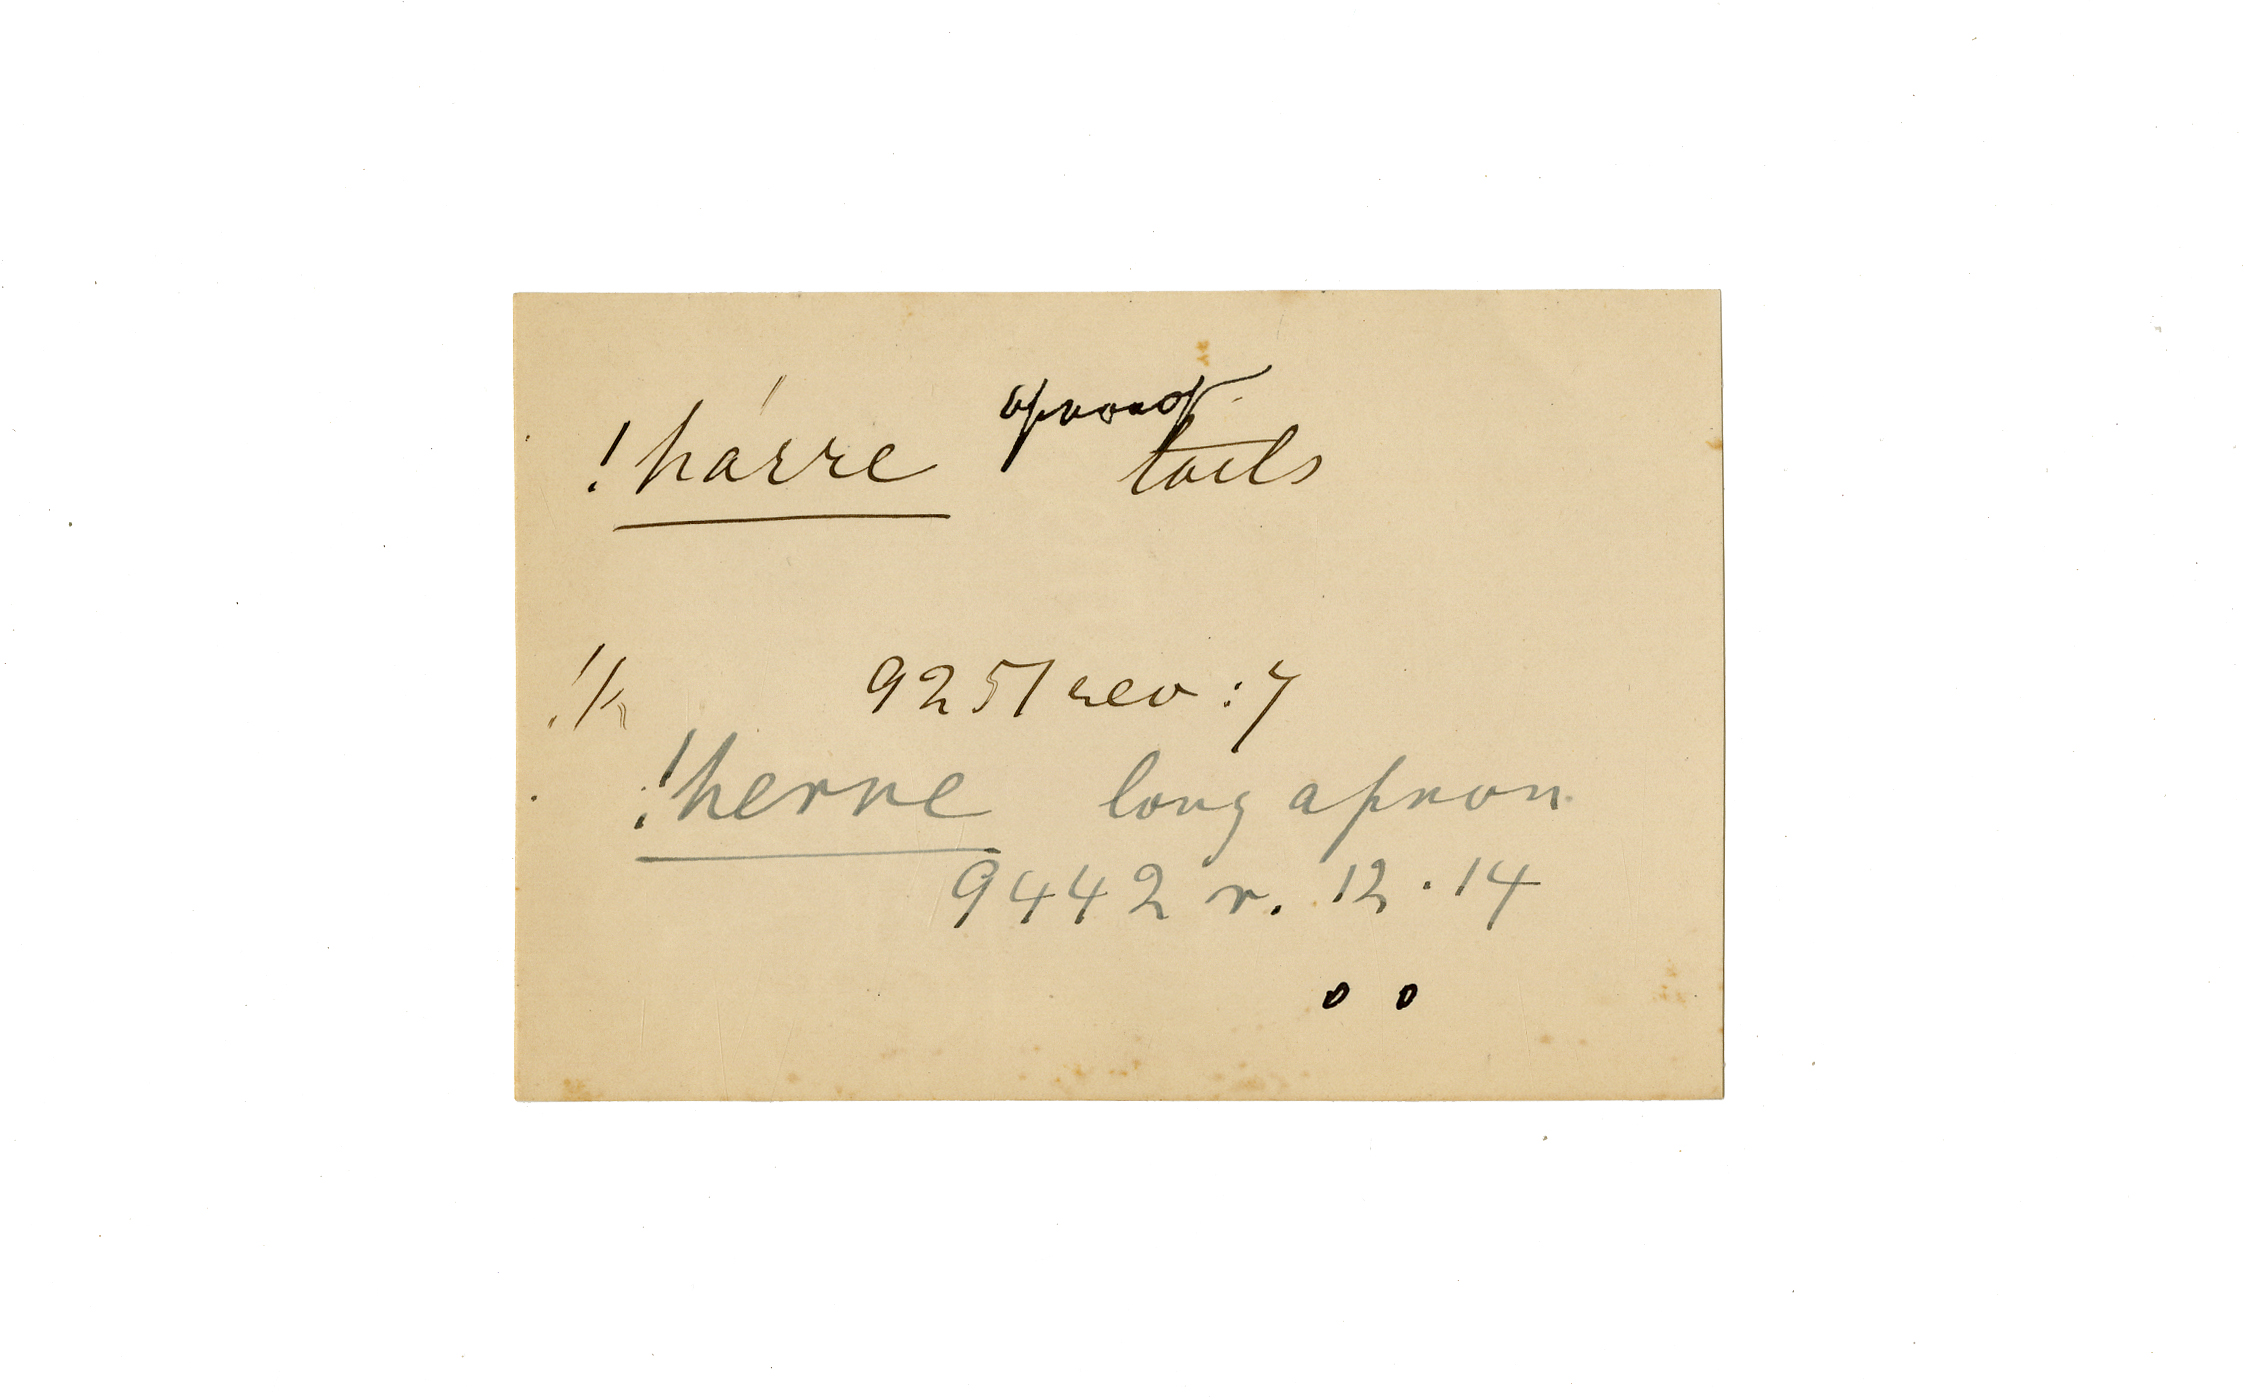 apron of
!hárre tails
!k 9251 rev : 7
!herre long apron.
9442 r. 12 . 14
o o